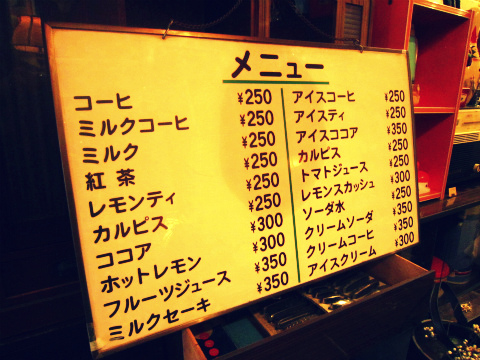 メニュー
コーヒ ¥250
ミルクコーヒ ¥250
ミルク ¥250
紅茶 ¥250
レモンティ ¥250
カルピス ¥250
ココア ¥300
ホットレモン ¥300
フルーツジュース ¥350
ミルクセーキ ¥350
アイスコーヒ ¥250
アイスティ ¥250
アイスココア ¥350
カルピス ¥250
トマトジュース ¥250
レモンスカッシュ ¥300
ソーダ水 ¥250
クリームソーダ ¥350
クリームコーヒ ¥350
アイスクリーム ¥300